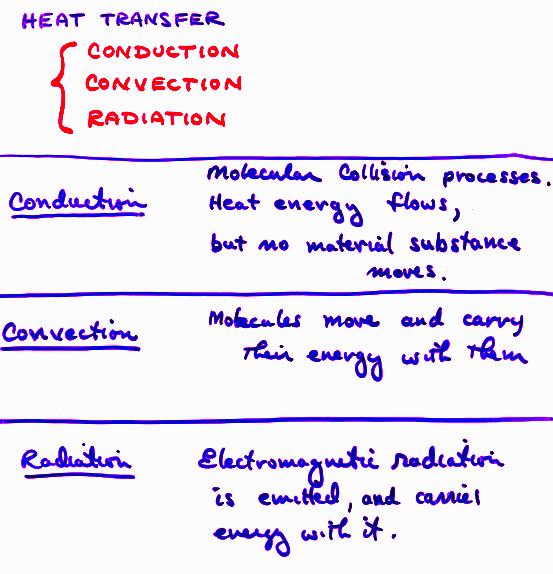 HEAT TRANSFER
CONDUCTION
CONVECTION
RADIATION
Conduction
Molecular Collision processes.
Heat energy flows,
but no material substance
moves.
Convection
Molecules move and carry
their energy with them
Radiation
Electromagnetic radiation
is emitted, and carries
energy with it.